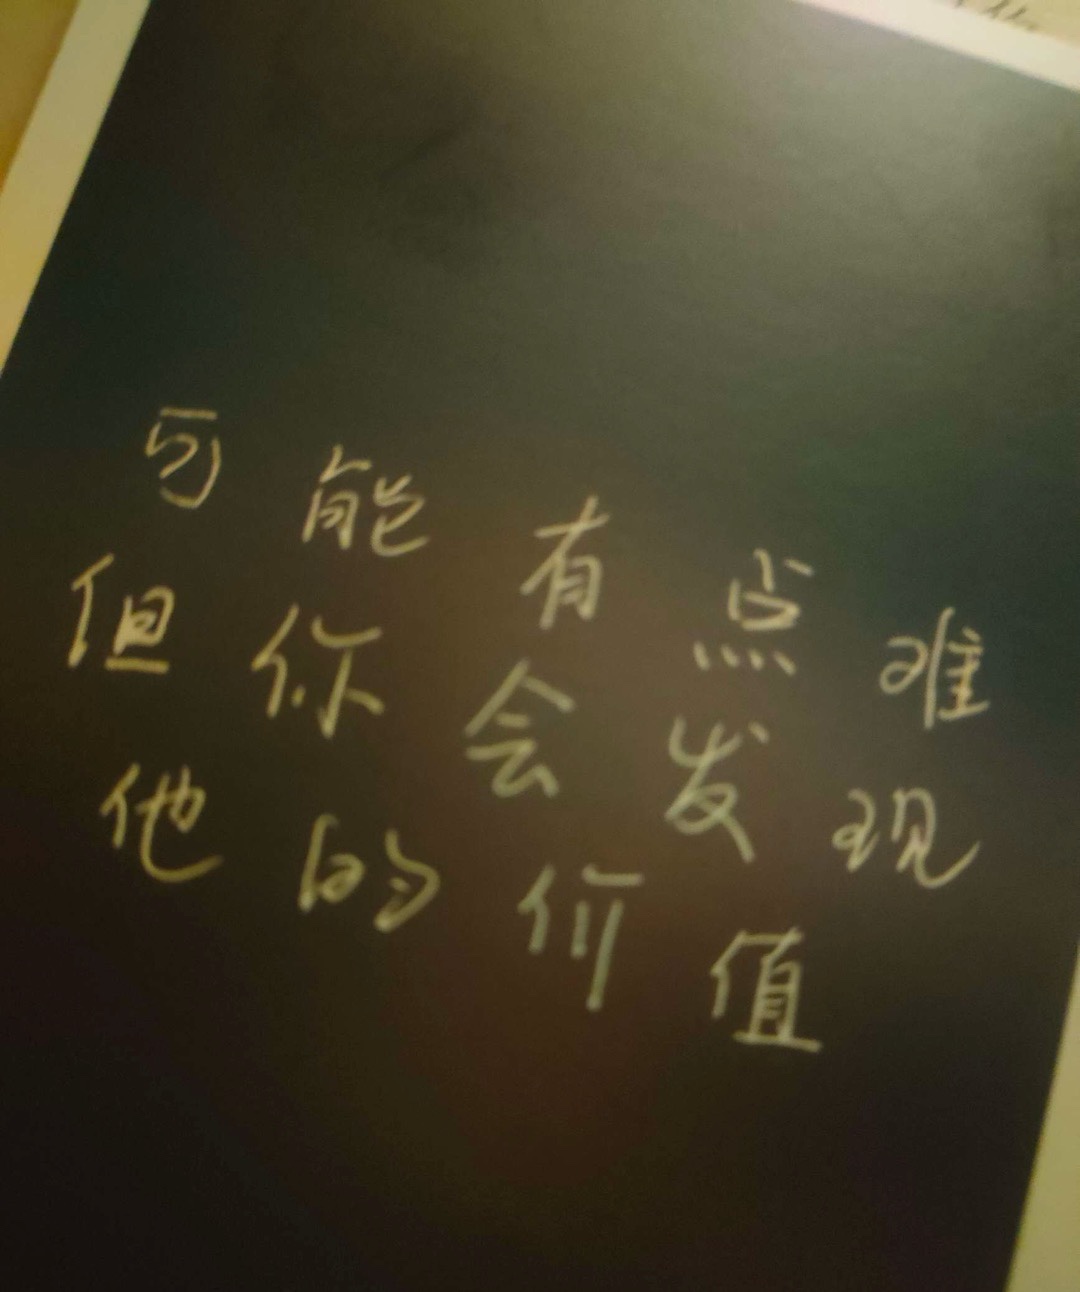 可能有点难
但你会发现
他的价值